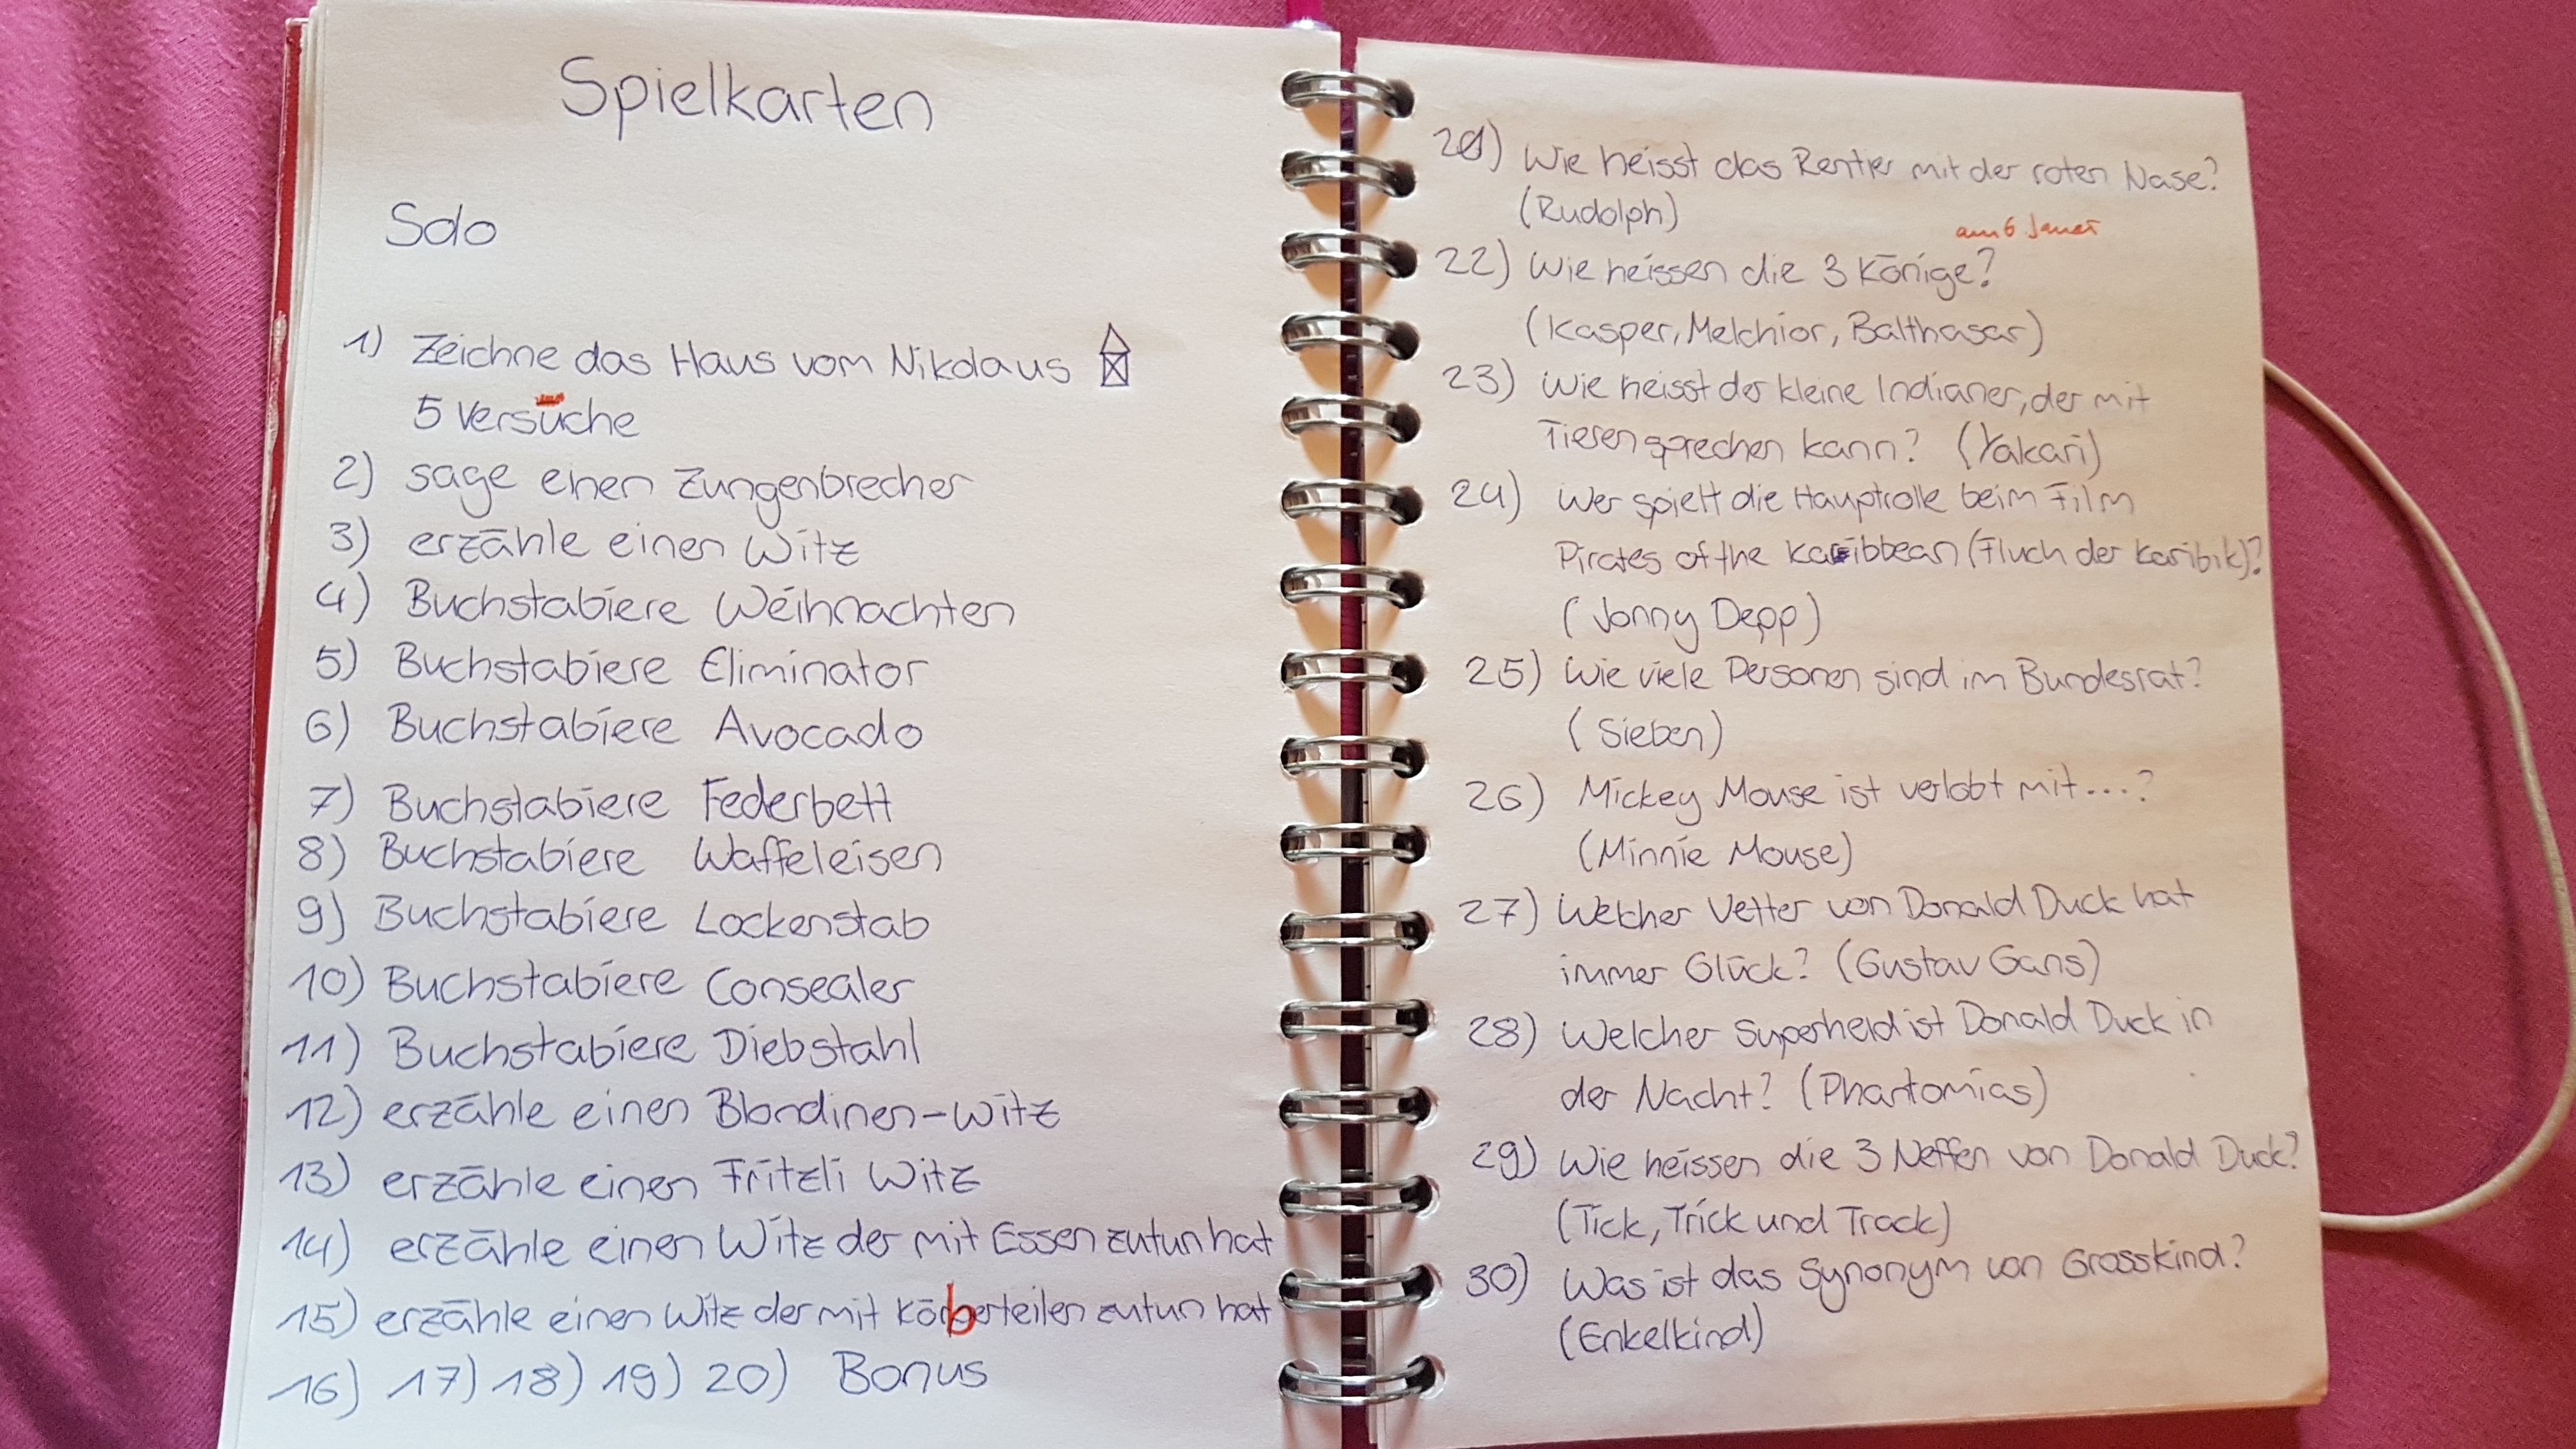 Spielkarten
Solo
1) Zeichne das Haus vom Nikolaus
5 Versuche
2) sage einen Zungenbrecher
3) erzähle einen Witz
4) Buchstabiere Weihnachten
5) Buchstabiere Eliminator
6) Buchstabiere Avocado
7) Buchstabiere Federbett
8) Buchstabiere Waffeleisen
9) Buchstabiere Lockenstab
10) Buchstabiere Consealer
11) Buchstabiere Diebstahl
12) erzähle einen Blondinen-Witz
13) erzähle einen Fritzli Witz
14) erzähle einen Witz der mit Essen zutun hat
15) erzähle einen Witz der mit Körperteilen zutun hat
16) 17) 18) 19) 20) Bonus
21) Wie heisst das Rentier mit der roten Nase?
(Rudolph)
am 6 Januar
22) Wie heissen die 3 Könige?
(Kasper, Melchior, Balthasar)
23) Wie heisst der kleine Indianer, der mit
Tieren sprechen kann? (Yakari)
24) Wer spielt die Hauptrolle beim Film
Pirates of the karibbean (Fluch der Karibik)?
(Jonny Depp)
25) Wie viele Personen sind im Bundesrat?
(Sieben)
26) Mickey Mouse ist verlobt mit....?
(Minnie Mouse)
27) Welcher Vetter von Donald Duck hat
immer Glück? (Gustav Gans)
28) Welcher Superheld ist Donald Duck in
der Nacht? (Phantomias)
29) Wie heissen die 3 Neffen von Donald Duck?
(Tick, Trick und Track)
30) Was ist das Synonym von Grosskind?
(Enkelkind)